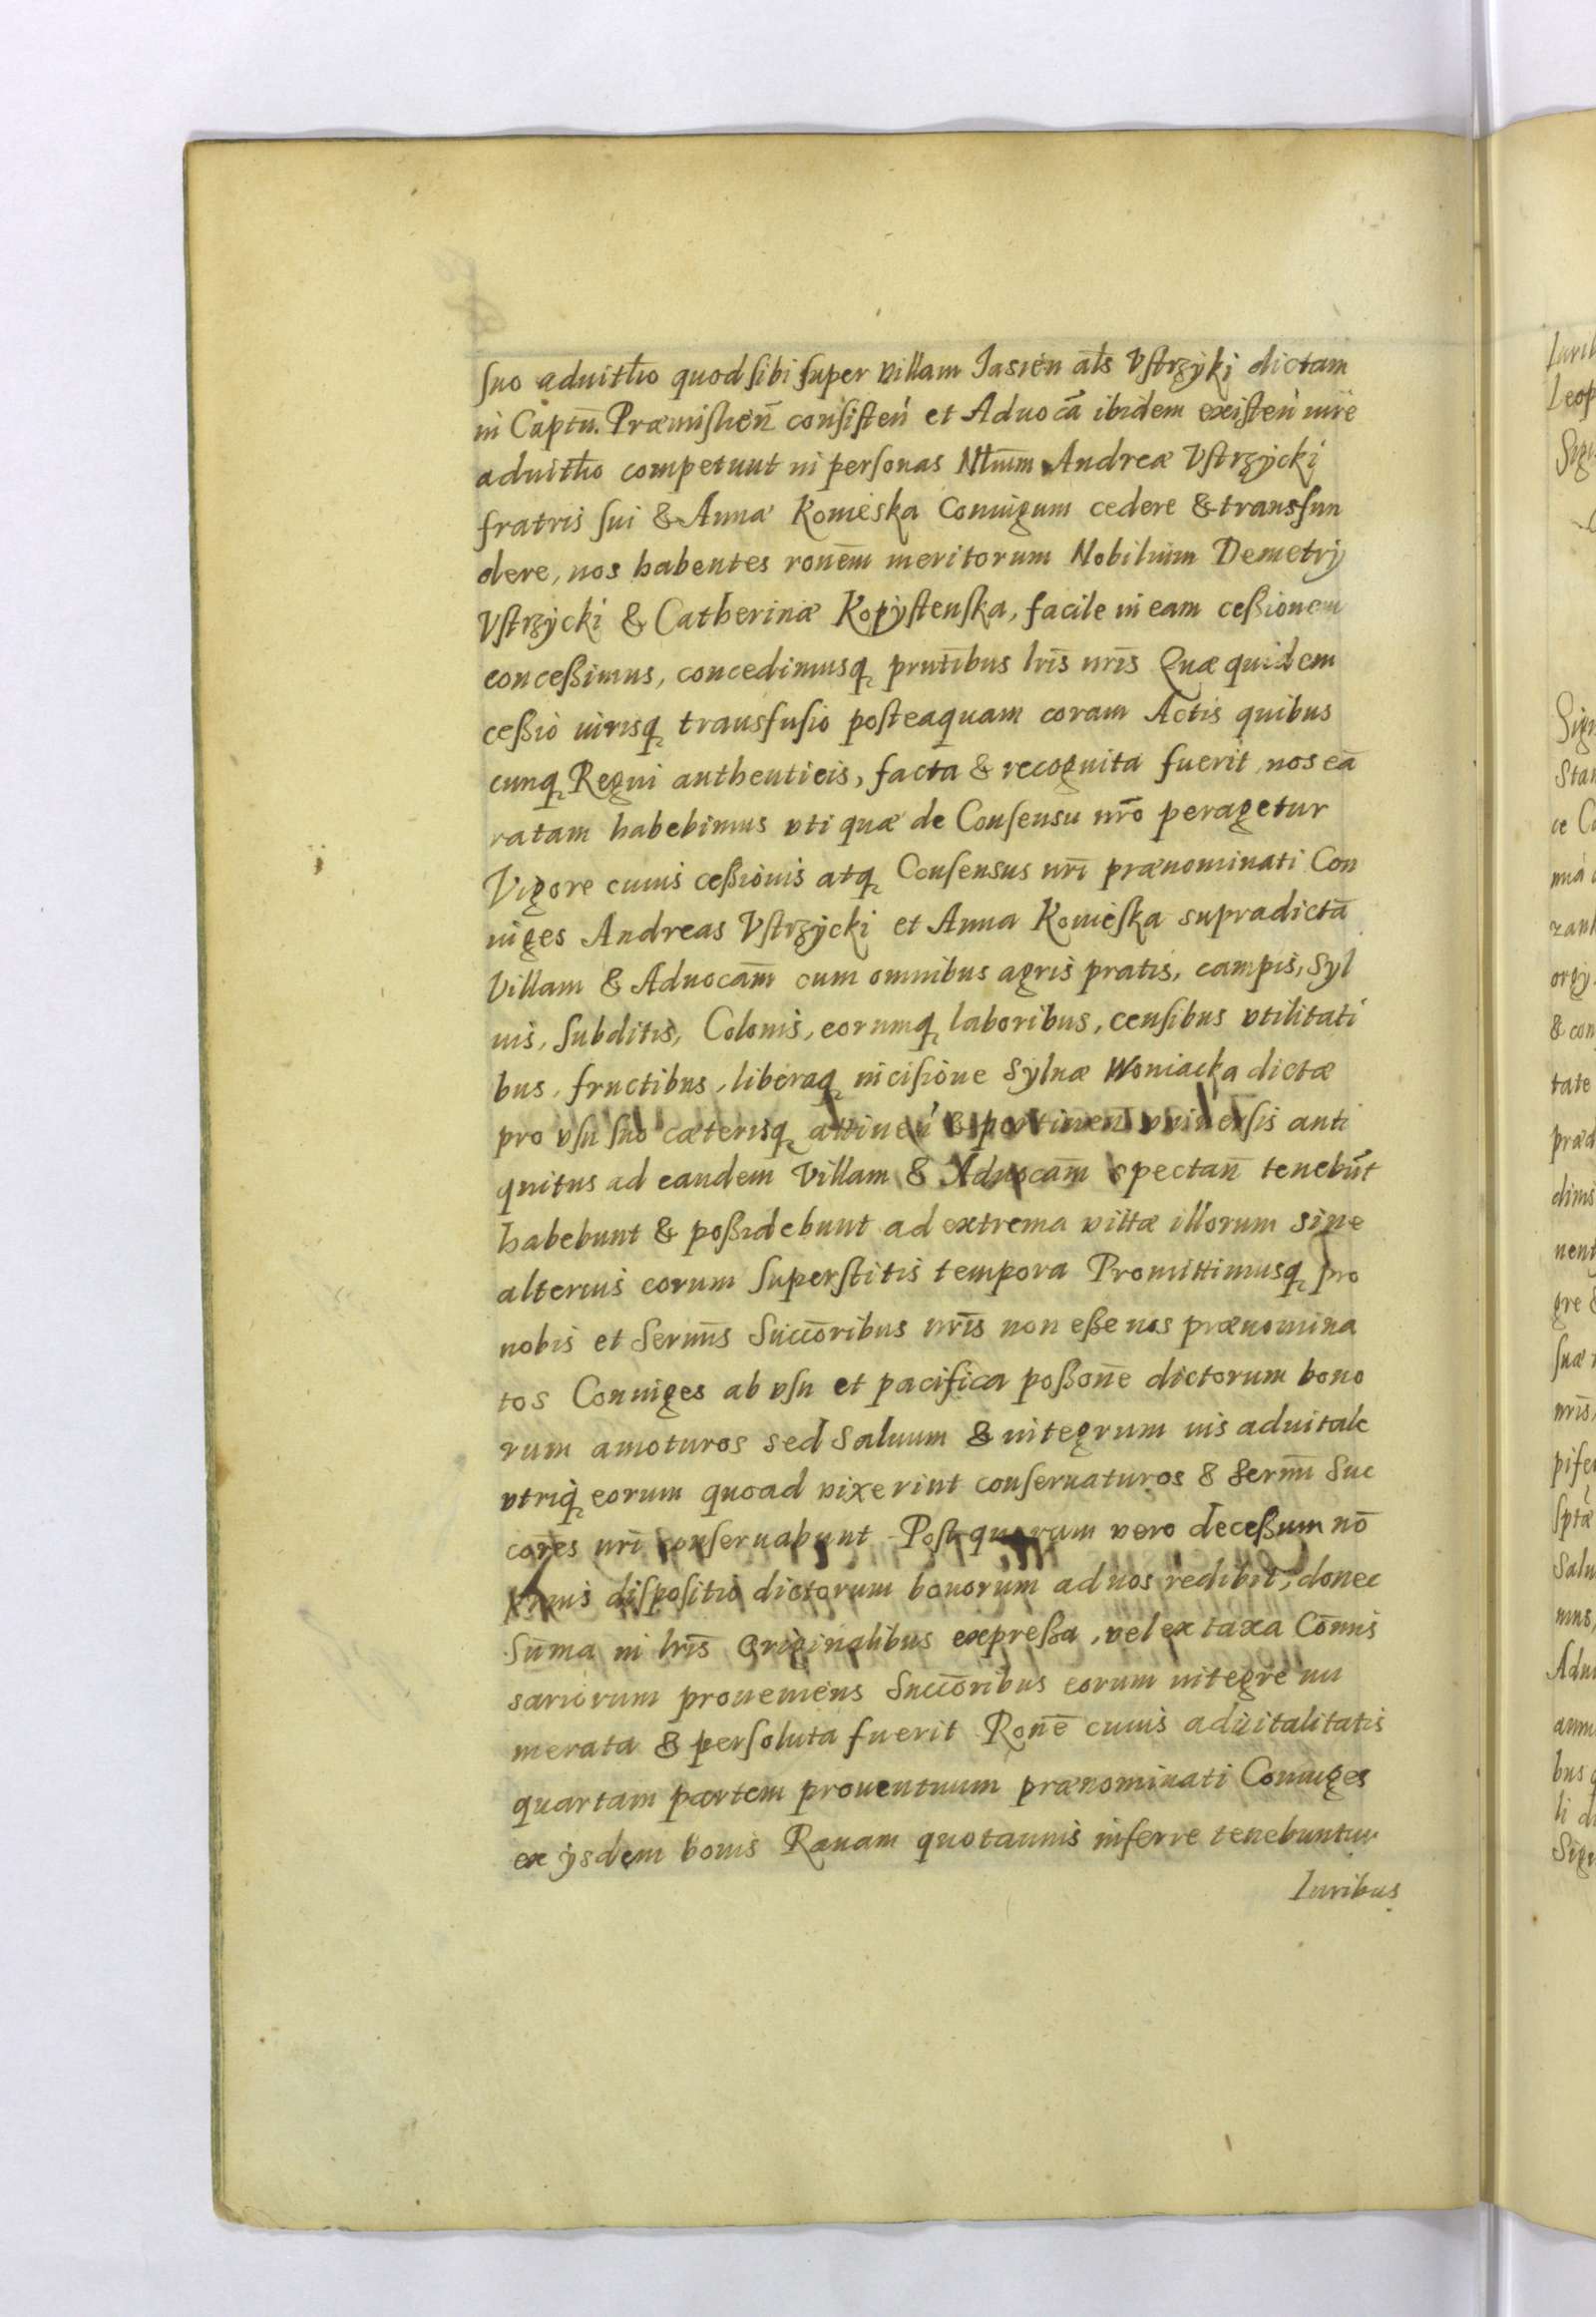 suo aduitło quod sibi super villam Jasień ałs Vstrzyki dictam
in Captu. Præmislien̄ consisteń et Aduocā ibidem existeń iure
aduitło competunt in personas Nłium Andreæ Vstrzycki
fratris sui & Annæ Konieska Coniugum cedere & transfun
dere, nos habentes ronem̄ meritorum Nobilium Demetrij
Vstrzycki & Catherinæ Kopystenska, facile in eam ceßionem
conceßimus, concedimusq prntibus lris̄ nris̄ Quæ quidem
ceßio iurisq transfusio posteaquam coram Actis quibus
cunq Regni authenticis, facta & recognita fuerit, nos eā
ratam habebimus vti quæ de Consensu nrō peragetur
Vigore cuius ceßionis atq Consensus nri̅ prænominati Con
iuges Andreas Vstrzycki et Anna Konieska supradictā
Villam & Aduocam̄ cum omnibus agris pratis, campis, Syl
uis, Subditis, Colonis, eorumq laboribus, censibus vtilitati
bus, fructibus, liberaq incisione Syluæ Woniacka dictæ
pro vsu suo cæterisq attineń & pertinen̄ vniuersis anti
quitus ad eandem Villam & Aduocam̄ spectan̄ tenebūt
habebunt & poßidebunt ad extrema vittæ illorum siue
alterius eorum Superstitis tempora Promittimusq pro
nobis et Sermis̄ Succōribus nris̄ non eße nos prænomina
tos Coniuges ab vsu et pacifica poßone̅ dictorum bono
rum amoturos sed Saluum & integrum ius aduitale
vtriq eorum quoad vixerint conseruaturos & Sermi̅ Suc
cores̄ nri̅ conseruabunt Post quorum vero deceßum nō
prius dispositio dictorum bonorum ad nos redibit, donec
Sum̄a in lris̄ Originalibus expreßa, vel ex taxa Com̄is
sariorum proueniens Succōribus eorum integre nu
merata & persoluta fuerit Rone̅ cuius aduitalitatis
quartam partem prouentuum prænominati Coniuges
ex ijsdem bonis Rauam quotannis inferre tenebuntur
Iuribus